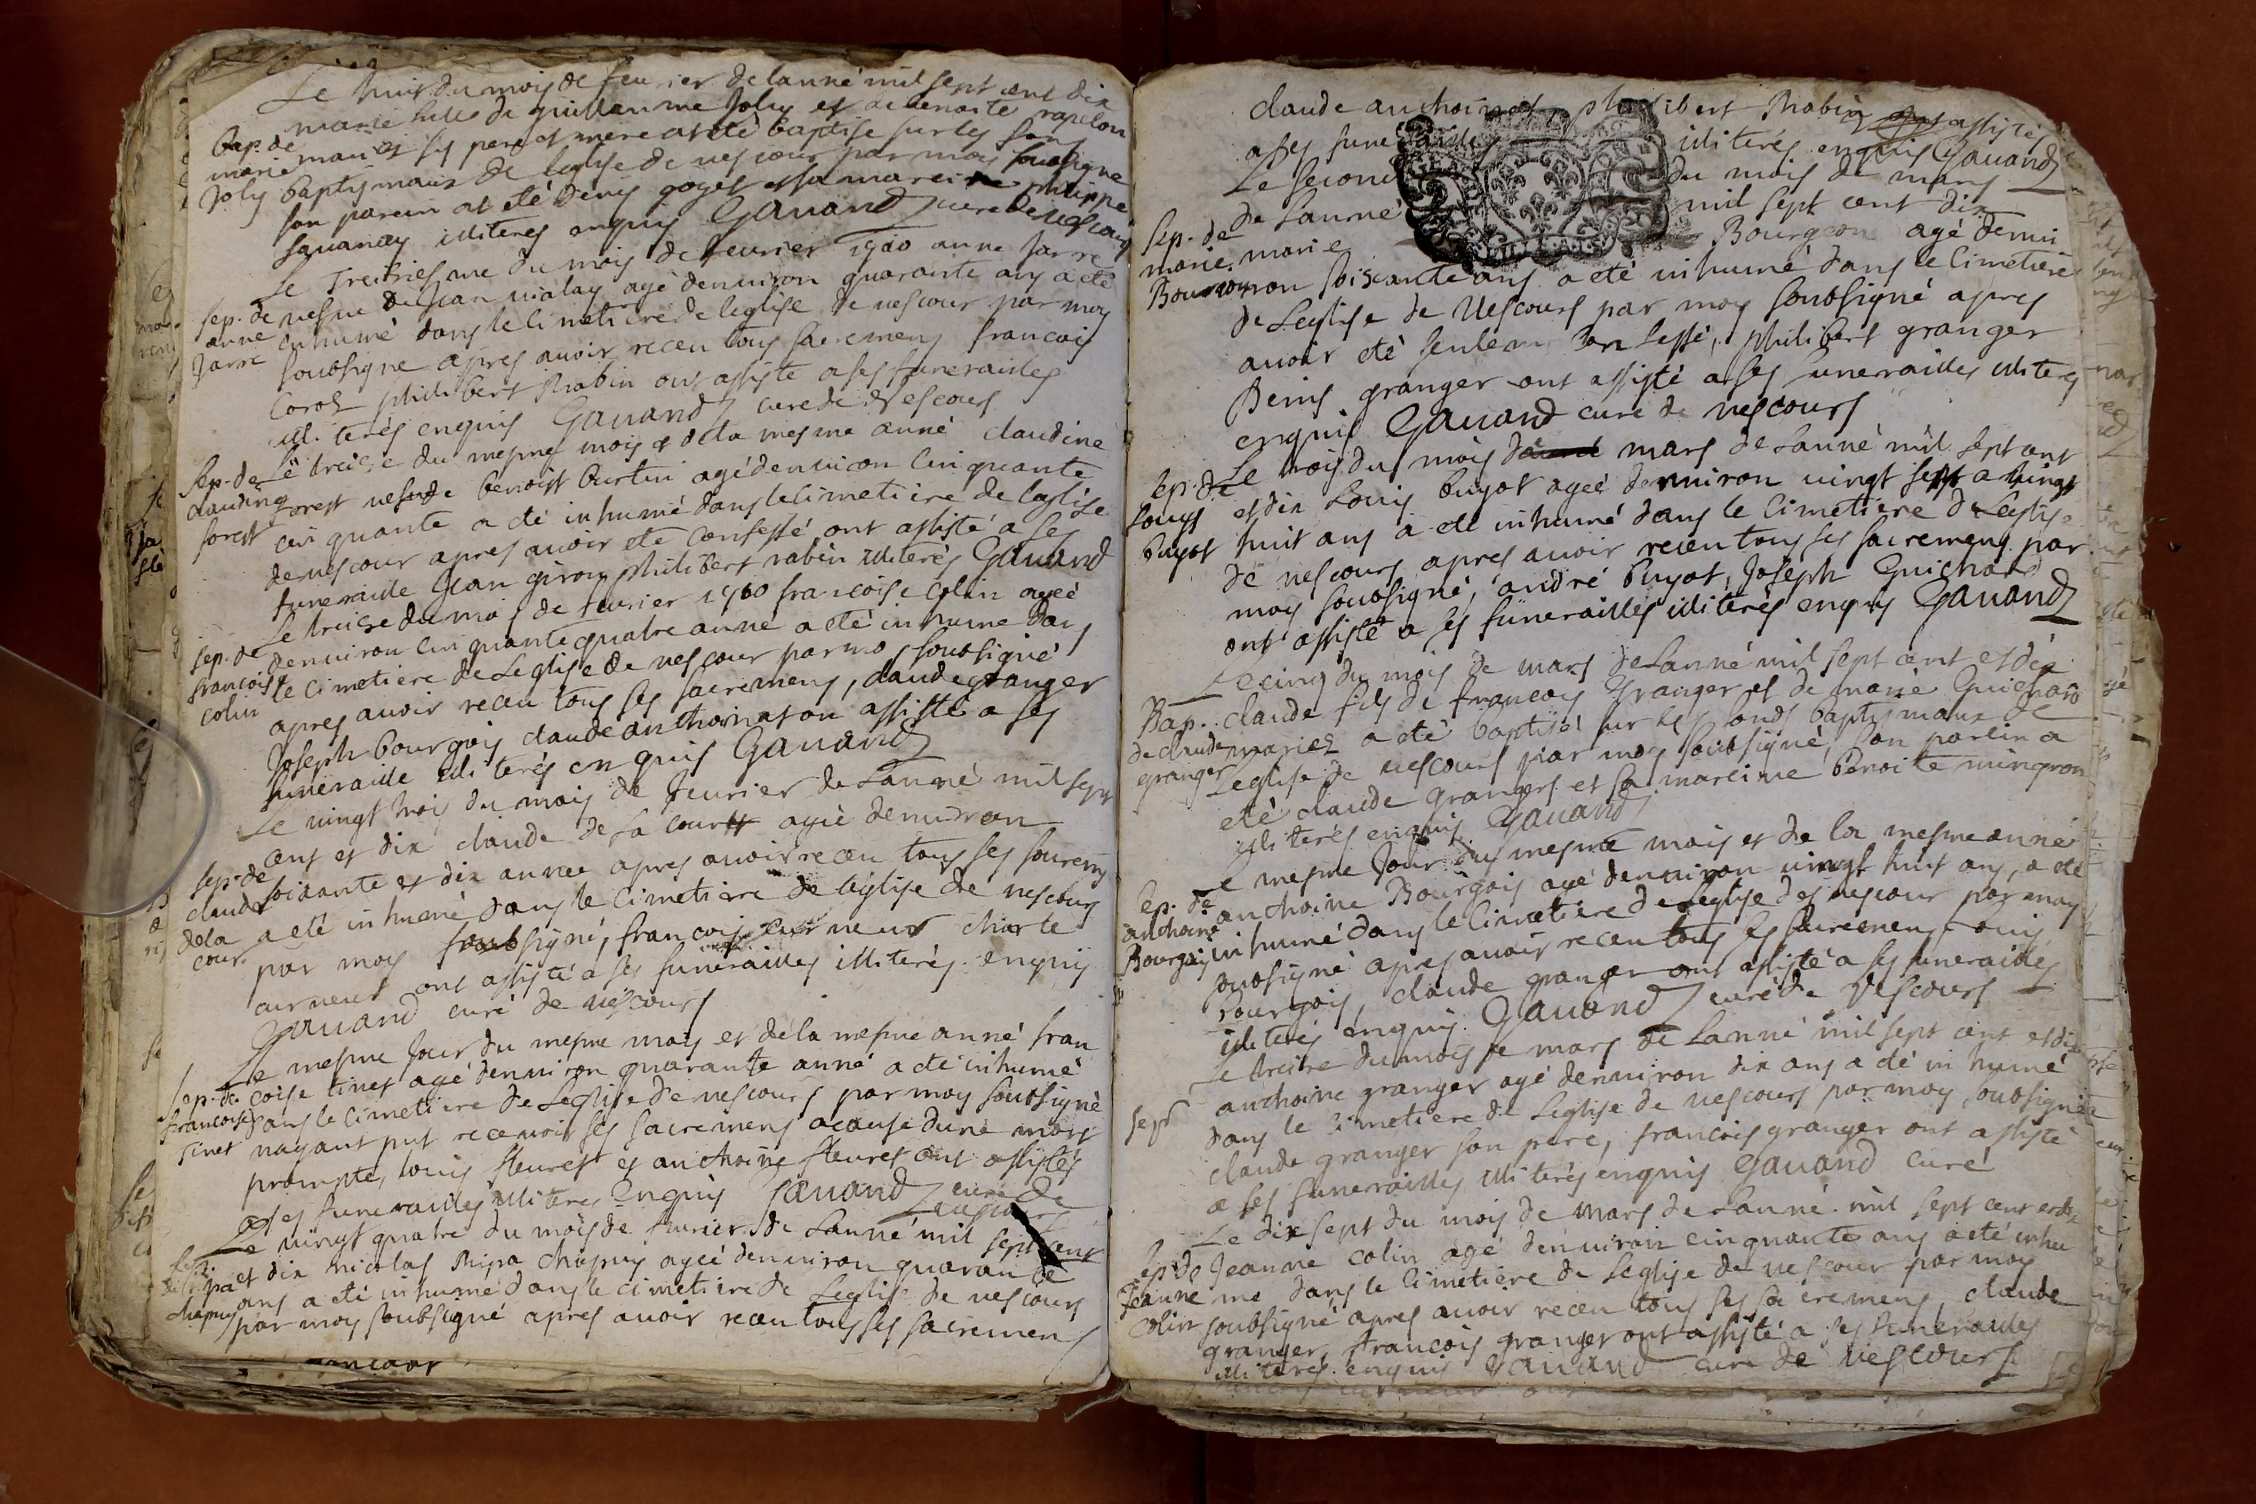 Le huit du mois de feurier de lanné mil sept cent dix
bap. de marie filles de guillaume Joly et de benoite rapelon
marie mariés ses pere et mere at eté baptisé sur les fon
Joly baptismaux de leglise de uescour par moy soubsigné
son parein at eté Denys goyet et sa mareine philippe
sauanay illiteres enquis Gauand cure de uescours
Le Treisiesme du mois de feurier 1710 anne Jarre
sep. de uesue de Jean uialay agé denuiron quarante ans a eté
anne inhumé dans le Cimetiere de leglise de uescour par moy
Jarre soubsigne apres auoir receu tous sacremens francois
Corol philibert Rabin ont assiste a ses funerailles
illiterés enquis Gauand cure de Vescours
Sep. de Le treise du mesme mois et de la mesme anné claudine
claudine forest uesue de benoist burtin agé denuiron Cinquante
forest cinquante a eté inhumé dans le Cimetiere de leglise
de uescour apres auoir eté Confessé ont assisté a ses
funeraille Jean giroy philibert rabin illiterés Gauand
Le treise du mois de feurier 1710 francoise Colin ageé
sep. de denuiron cinquante quatre anné a eté inhume dans
francoise le Cimetiere de Leglise de uescour par moy soubsigné
colin apres auoir receu tous ses sacremens, claude granger
Joseph bourgois claude anthoinat on assisté a ses
funeraille illiterés enquis Gauand
Le uingt trois du mois de feurier de Lanné mil sept
cent et dix claude de La court agé denuiron
sep. de soixante et dix anneé apres auoir receu tous ses sacremens
claude a eté inhumé dans le Cimetiere de léglise de uescours
de la par moy soubsigné, francois charle
cour ont assisté a ses funerailles illiterés enquis
Gauand curé de uescours
Le mesme Jour du mesme mois et de la mesme anné fran
sep. de coise tinet agé denuiron quarante anné a eté inhumé
francoise dans le Cimetiere de Leglise de uescours par moy soubsigné
tinet nayant put receuoir ses sacremens acause dune mort
prompte, louis fleuret et anthoine fleuret ont assistés
a ses funerailles illiteres Enquis Gauand curé de
uescours
Le uingt quatre du mois de feurier de Lanné mil sept cent
sep. et dix nicolas chapuy ageé denuiron quarante
chapuy ans a eté inhumé dans le cimetiere de Leglise de uescours
par moy soubsigné apres auoir receu tous ses sacremens
claude anthoinat, philibert Rabin ont assistés
a ses funerailles illiterés enquis Gauand
Le second du mois de mars
Sep. de de Lanné mil sept cent dix
marie marie Bourgeon agé denui
Bourgeon ron soixante ans a eté inhumé dans le Cimetiere
de Leglise de Vescours par moy soubsigné apres
auoir eté seulem Con fessé, philibert granger
Denis granger ont assisté a ses funerailles illiteres
enquis Gauand curé de uescours
Sep. de Le trois du mois mars de Lanné mil sept cent
Louys et dix Louis buyat ageé denuiron uingt sept a uingt
buyat huit ans a eté inhumé dans le Cimetiere de Leglise
de uescours apres auoir receu tous ses sacremens par
moy soubsigné, andré buyat, Joseph Guichard
ont assisté a ses funerailles illiterés enquis Gauand
Le cinq du mois de mars de Lanné mil sept cent et dix
Bap. claude fils de francois Granger et de marie Guichard
de claude mariez a eté baptisé sur les fonds baptismaux de
granger Leglise de uescours par moy soubsigné, son parein a
eté claude granger et sa mareine benoite mingron
illiterés enquis Gauand
Le mesme Jour du mesme mois et de la mesme anné
sep. de anthoine Bourgois agé denuiron uingt huit ans, a eté
anthoine inhumé dans le Cimetiere de Leglise de uescour par moy
Bourgois soubsigné apres auoir receu tous ses sacremens
bourgois, claude granger ont assisté a ses funerailles
illiterés enquis Gauand curé de Vescours
Le treise du mois de mars de Lanné mil sept cent et dix
anthoine granger agé denuiron dix ans a eté inhumé
sept dans le Cimetiere de Leglise de uescours par moy soubsigné
claude granger son pere, francois granger ont assisté
a ses funerailles illiterés enquis Gauand curé
Le dix sept du mois de Mars de Lanné mil sept cent et dix
sep. de Jeanne Colin agé denuiron cinquante ans a eté inhu
Jeanne mé dans le Cimetiere de Leglise de uescour par moy
Colin soubsigné apres auoir receu tous ses sacremens, claude
granger, francois granger ont assisté a ses funerailles
illiterés enquis Gauand curé de uescours